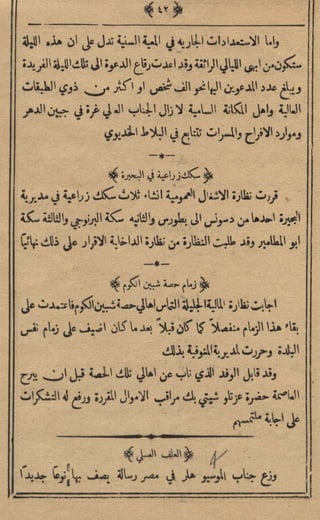 ﴿ ٤٢ ﴾
واما الاستعدادات الجارية في المعية السنية تدل على ان هذه الليلة
ستكون من ابهى الليالي الرائقة وقد اعدت رقاع الدعوة الى تلك الليلة الفريدة
ويبلغ عدد المدعوين اليها نحو الف شخص او اكثر من ذوي الطبقات
العالية واهل المكانة السامية لا زال الجناب العالي غرة في جبين الدهر
وموارد الافراح والمسرات تتتابع في البلاط الخديوي
﴿ سكك زراعية في البحيرة ﴾
قررت نظارة الاشغال العمومية انشاء ثلاث سكك زراعية في مديرية
البحيرة احدها من دسونس الى بطورس والثانيه سكة البرنوجي والثالثة سكة
ابو المطامير وقد طلبت النظارة من نظارة الداخلية الاقرار على ذلك نهائياً
﴿ زمام حصة شبين الكوم ﴾
اجابت نظارة المالية الجليلة التماس اهالي حصة شبين الكوم فاعتمدت على
بقاء هذا الزمام منفصلاً كما كان قبلاً بعد ما كان اضيف على زمام نفس
البلدة وحررت لمديرية المنوفية بذلك
وقد قابل الوفد الذي ناب عن اهالي تلك الحصة قبل ان يبرح
العاصمة حضرة عزتلو شيتي بك مراقب الاموال المقررة ورفع له التشكرات
على اجابة ملتمسهم
﴿ العلف العسلي ﴾
وزع جناب الموسيو هلر في مصر رسالة يصف بها نوعاً جديداً